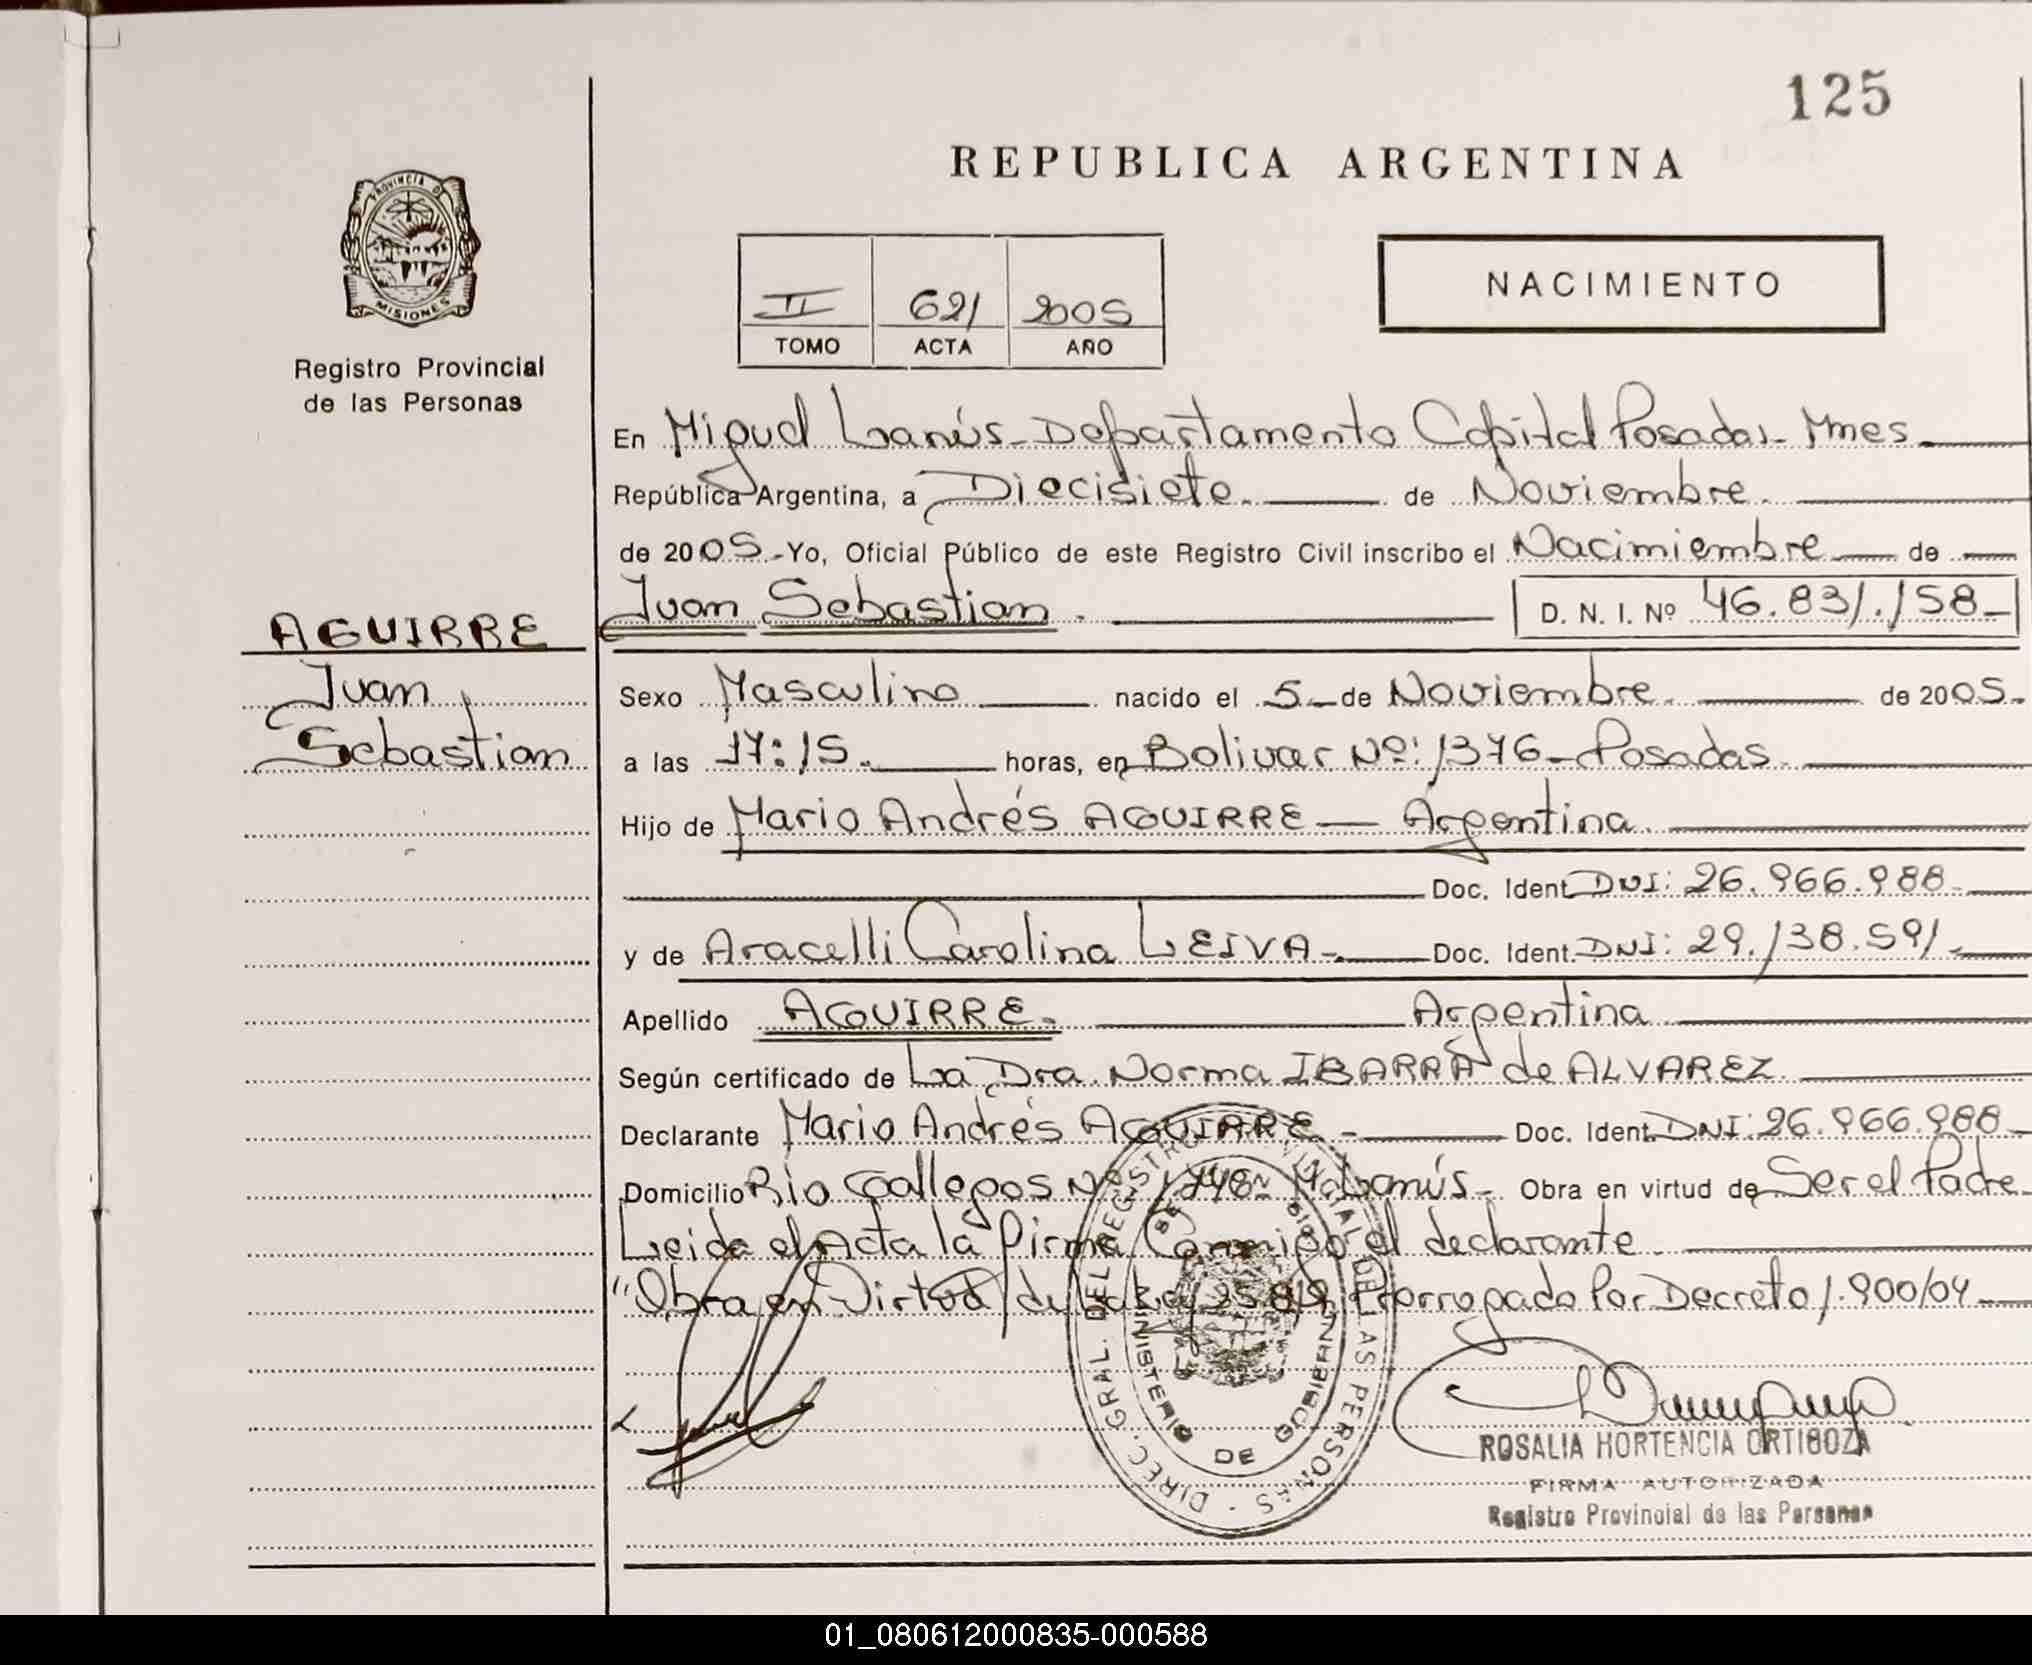 125
REPUBLICA ARGENTINA
PROVINCIA DE
MISIONES
Registro Provincial
de las Personas
II 621 2005
TOMO ACTA AÑO
NACIMIENTO
En Miguel Lanús - Departamento Capital Posadas - Mnes.
República Argentina, a Diecisiete. de Noviembre.
de 2005.- Yo, Oficial Público de este Registro Civil inscribo el Nacimiembre de
AGUIRRE
Juan
Sebastian
Juan Sebastian. D. N. I. Nº 46.831.158-
Sexo Masculino nacido el 5 - de Noviembre. de 2005.
a las 17:15. horas, en Bolivar Nº: 1376 - Posadas.
Hijo de Mario Andrés AGUIRRE — Argentina.
Doc. Ident. DNI: 26.966.988
y de Aracelli Carolina LEIVA - Doc. Ident. DNI: 29.138.591.
Apellido AGUIRRE. Argentina
Según certificado de La Dra. Norma IBARRA de ALVAREZ
Declarante Mario Andrés AGUIRRE - Doc. Ident. DNI: 26.966.988
Domicilio Rio Gallegos Nº Lanús. Obra en virtud de Ser el Padre
Leida el Acta la firma Conmigo el declarante.
"Obra en Virtud de Prorrogado Por Decreto 1.900/04
DIREC. GRAL. DEL REGISTRO PROVINCIAL DE LAS PERSONAS
MINISTERIO DE GOBIERNO
ROSALIA HORTENCIA ORTIGOZA
FIRMA AUTORIZADA
Registro Provincial de las Personas
01_080612000835-000588